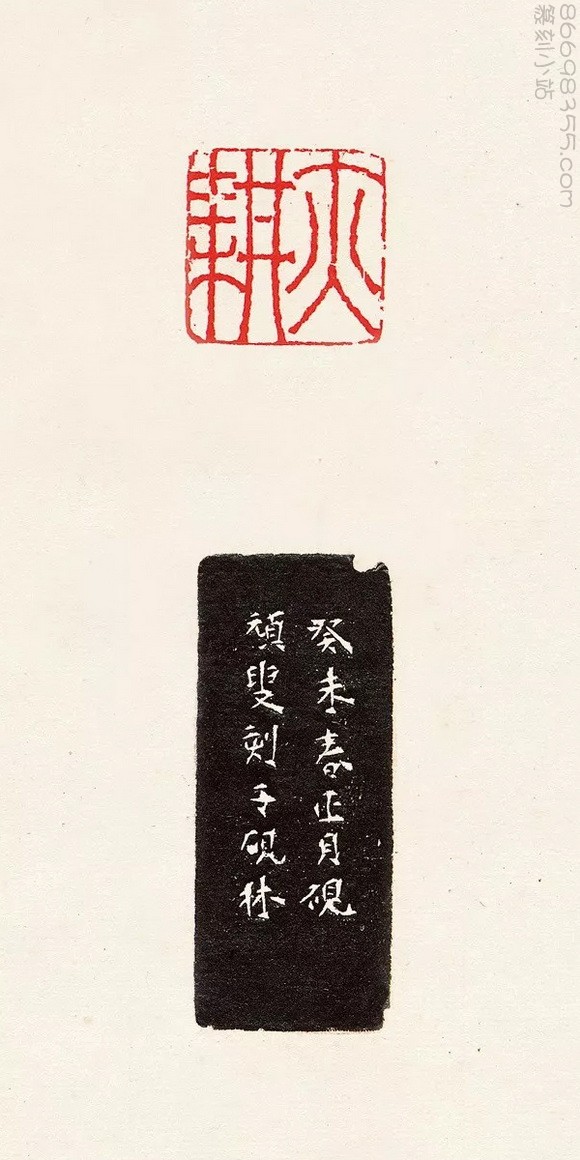 86698355.com
篆刻小站
耕
癸未春正月硯
叟刻于硯林